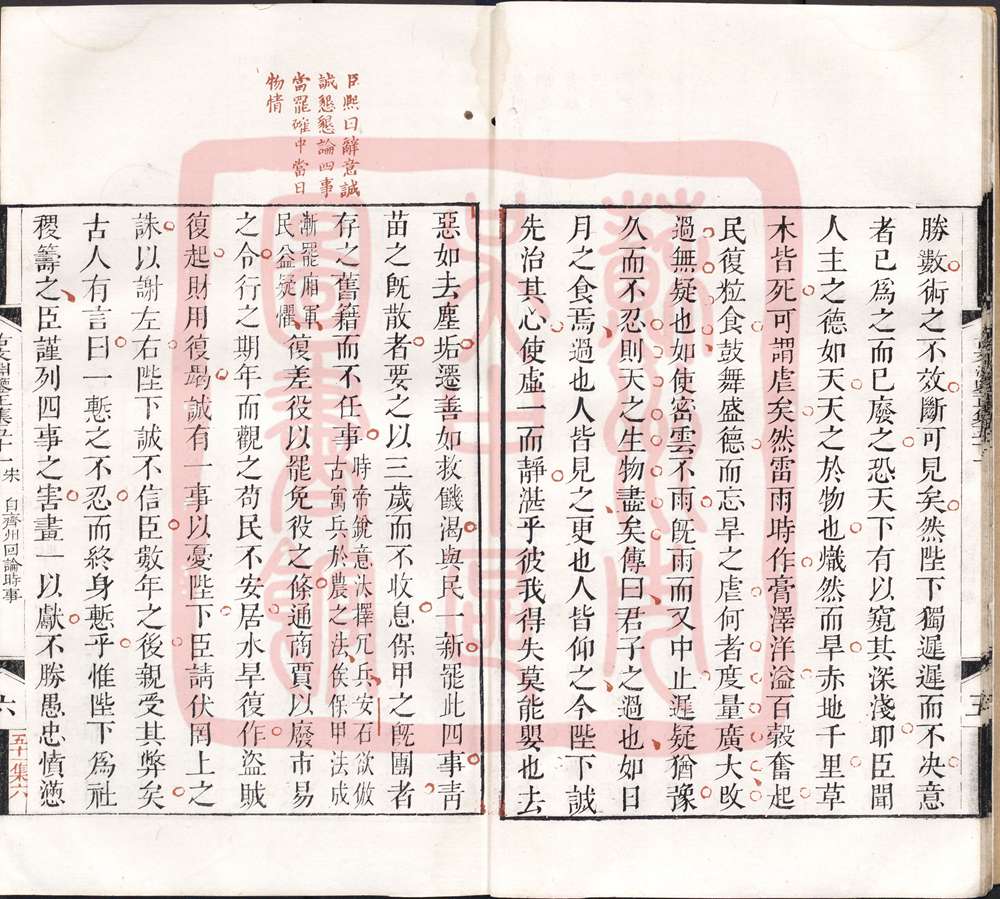 勝數術之不效斷可見矣然陛下獨遲遲而不決意
者已爲之而已廢之恐天下有以窺其深淺耶臣聞
人主之德如天天之於物也熾然而旱赤地千里草
木皆死可謂虐矣然雷雨時作膏澤洋溢百穀奮起
民復粒食鼓舞盛德而忘旱之虐何者度量廣大改
過無疑也如使密雲不雨既雨而又中止遲疑猶豫
久而不忍則天之生物盡矣傳曰君子之過也如日
月之食焉過也人皆見之更也人皆仰之今陛下誠
先治其心使虛一而靜湛乎彼我得失莫能嬰也去
五
臣熙曰辭意誠
誠懇懇論四事
當罷確中當日
物情
惡如去塵垢遷善如救饑渴與民一新罷此四事靑
苗之既散者要之以三歲而不收息保甲之既團者
存之舊籍而不任事時帝銳意汰擇冗兵安石欲倣
古寓兵於農之法俟保甲法成
漸罷廂軍
民益疑懼復差役以罷免役之條通商賈以廢市易
之令行之期年而觀之苟民不安居水旱復作盜賊
復起財用復竭誠有一事以憂陛下臣請伏罔上之
誅以謝左右陛下誠不信臣數年之後親受其弊矣
古人有言曰一慙之不忍而終身慙乎惟陛下爲社
稷籌之臣謹列四事之害畫一以獻不勝愚忠憤懣
古文淵鑒正集五十一 宋 自齊州回論時事
六
五十一集六